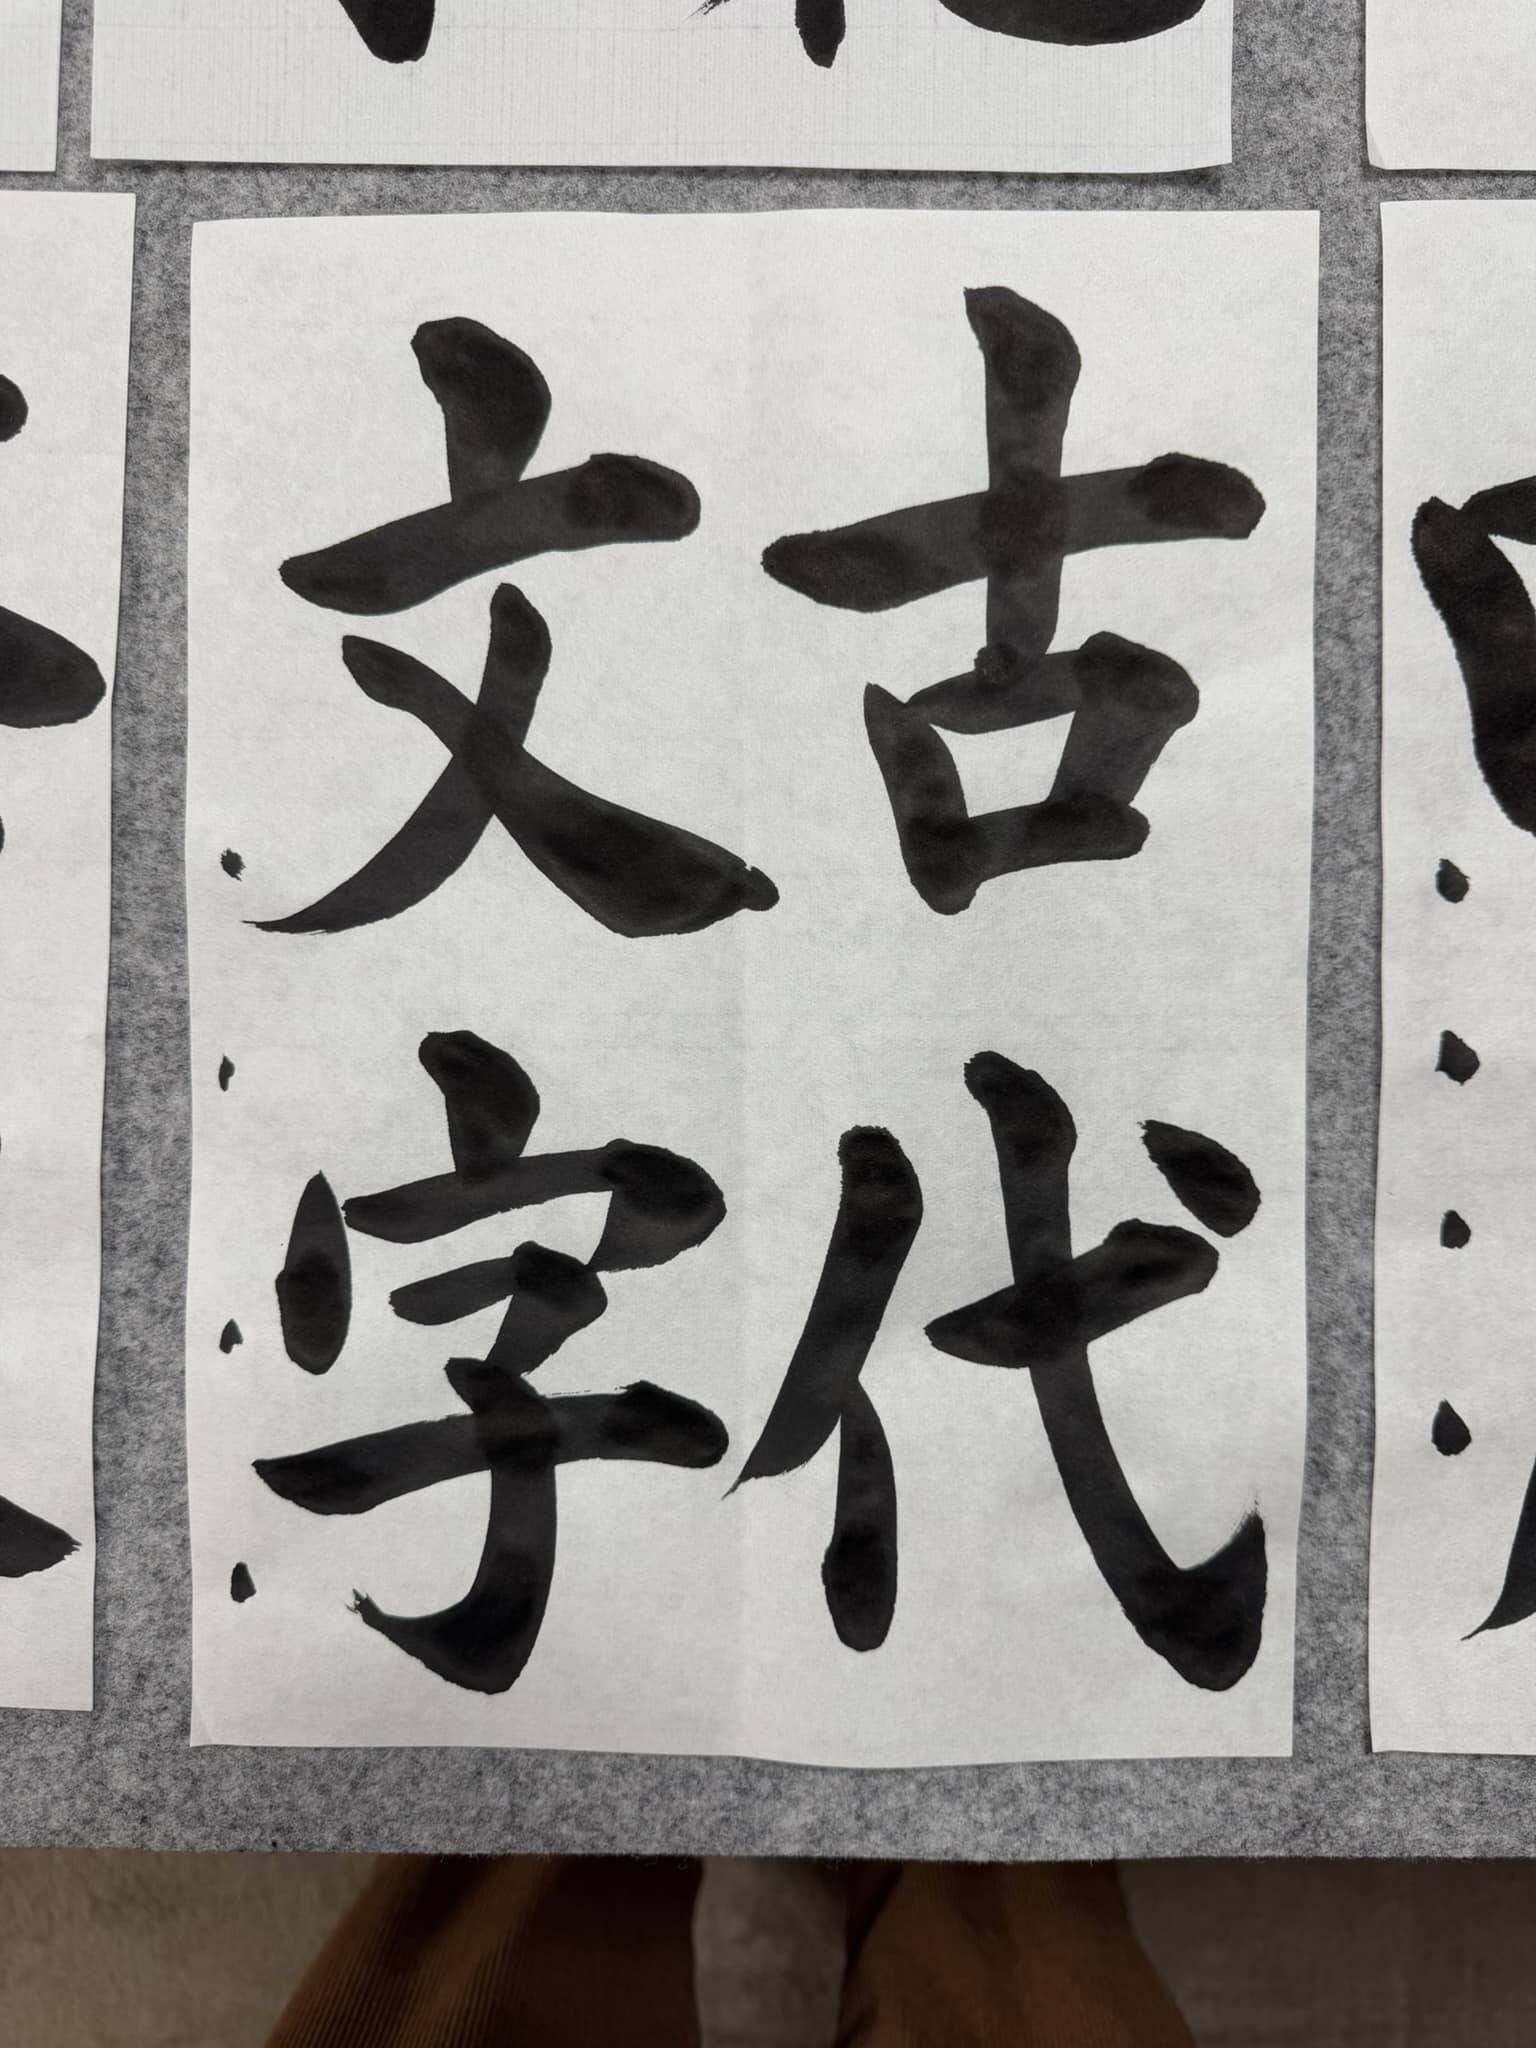 古代
文字